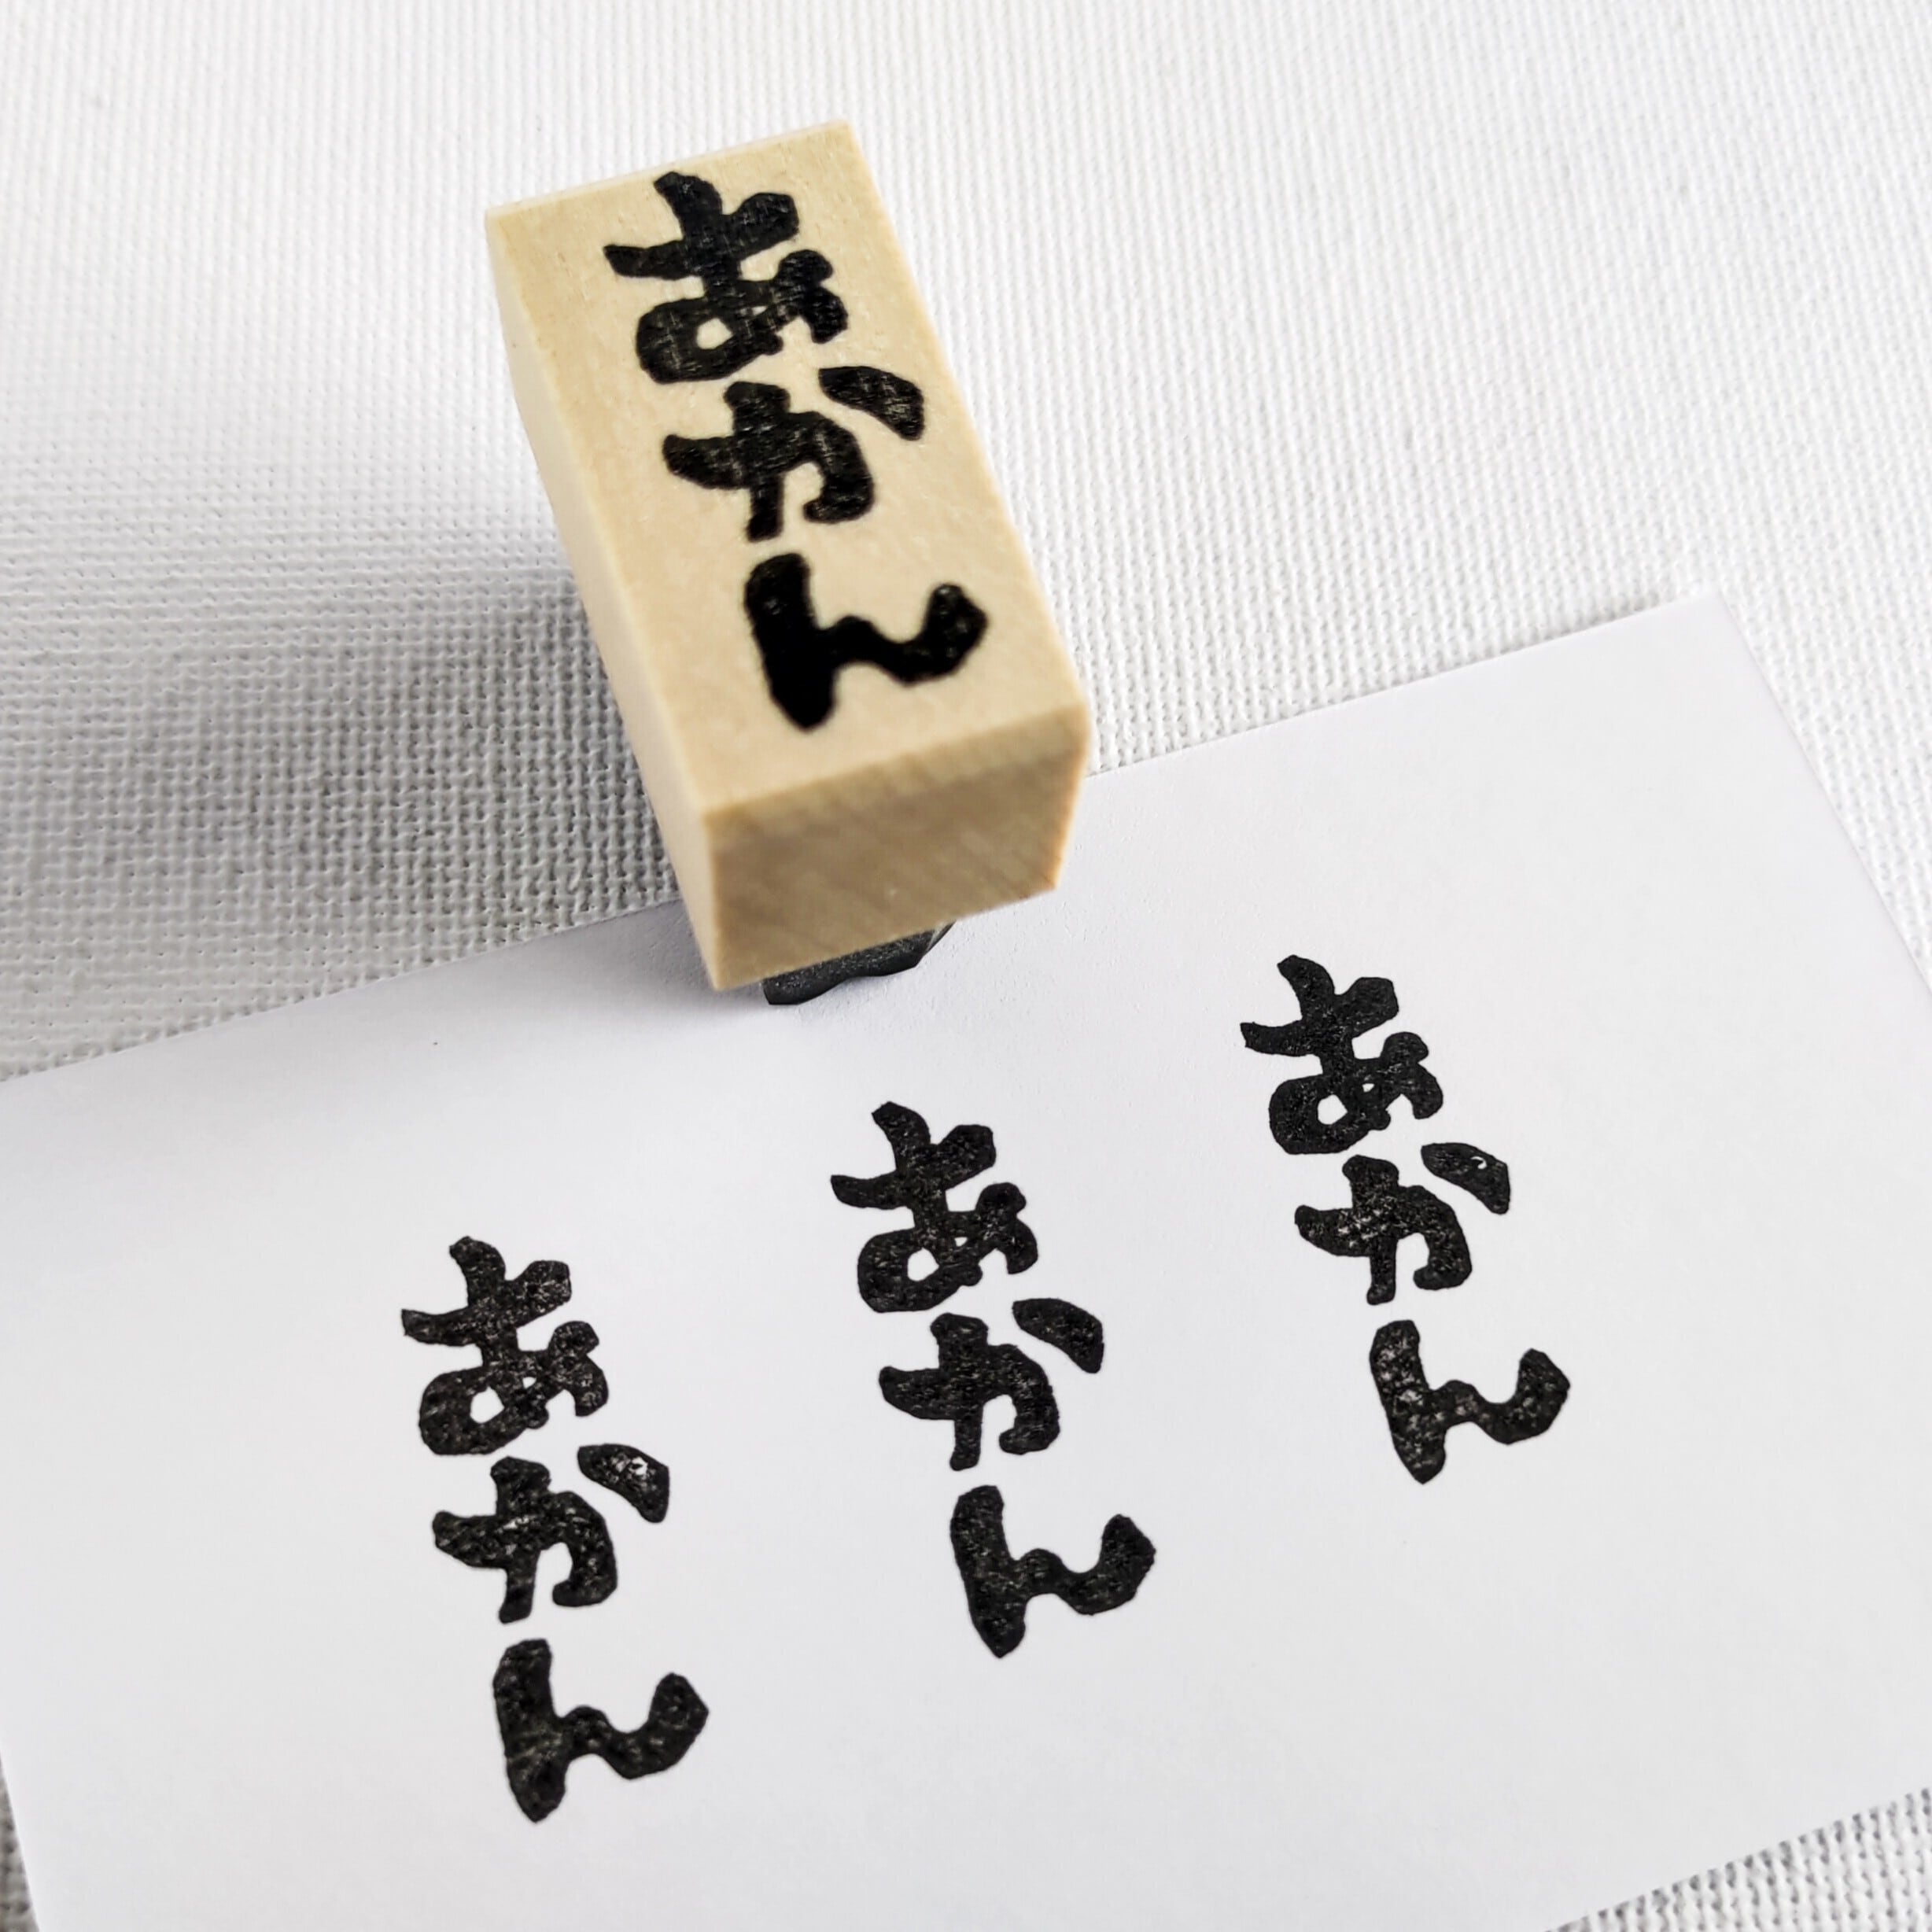 あかん
あかん
あかん
あかん